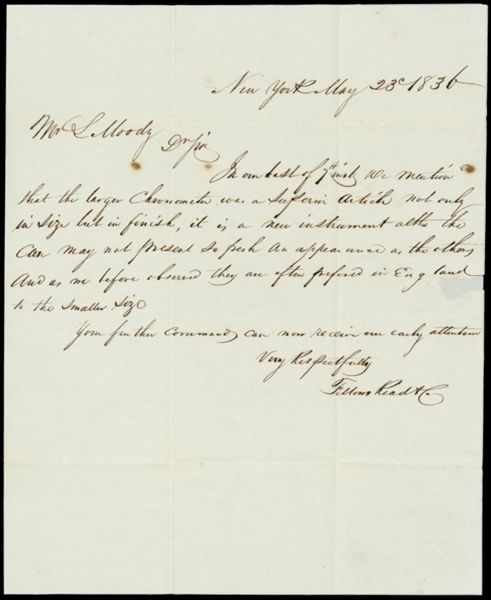 New York May 23d 1836
Mr L Moody
Dr Sir
In our last of 7th inst We mention
that the larger Chronometer was a superior Article not only
in size but in finish, it is a new instrument altho the
Case may not present so fresh an appearance as the others
And as we before observed they are often prefered in England
to the smaller size
Your further Commands can now receive our early attention
Very Respectfully
Fellows Read & Co